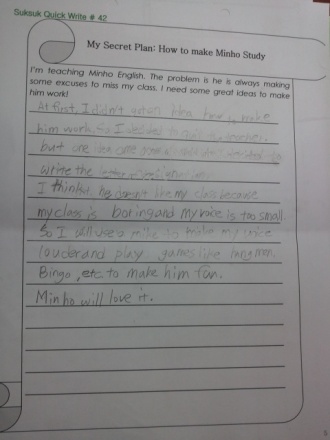 Suksuk Quick Write # 42
My Secret Plan: How to make Minho Study
I'm teaching Minho English. The problem is he is always making
some excuses to miss my class. I need some great ideas to make
him work!
At first, I didn't make
him work. So I decided to
but one
write the
I think he doesn't like my class because
my class is boring and my voice is too small.
So I will use a mike to make my voice
louder and play games like hangman,
Bingo, etc to make him fun.
Minho will love it.